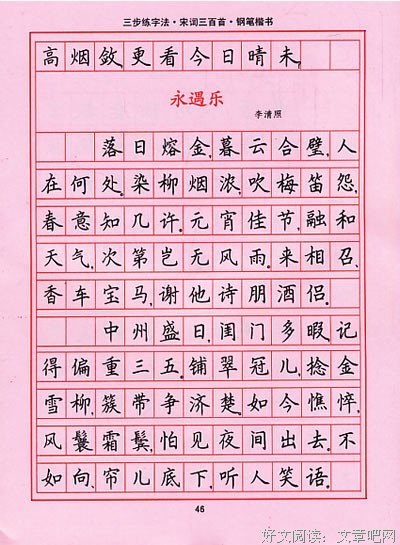 三步练字法·宋词三百首·钢笔楷书
高烟敛,更看今日晴未。
永遇乐
李清照
落日熔金,暮云合璧,人
在何处。染柳烟浓,吹梅笛怨,
春意知几许。元宵佳节,融和
天气,次第岂无风雨。来相召、
香车宝马,谢他诗朋酒侣。
中州盛日,闺门多暇,记
得偏重三五。铺翠冠儿,捻金
雪柳,簇带争济楚。如今憔悴,
风鬟霜鬓,怕见夜间出去。不
如向、帘儿底下,听人笑语。
46
好文阅读:文章吧网